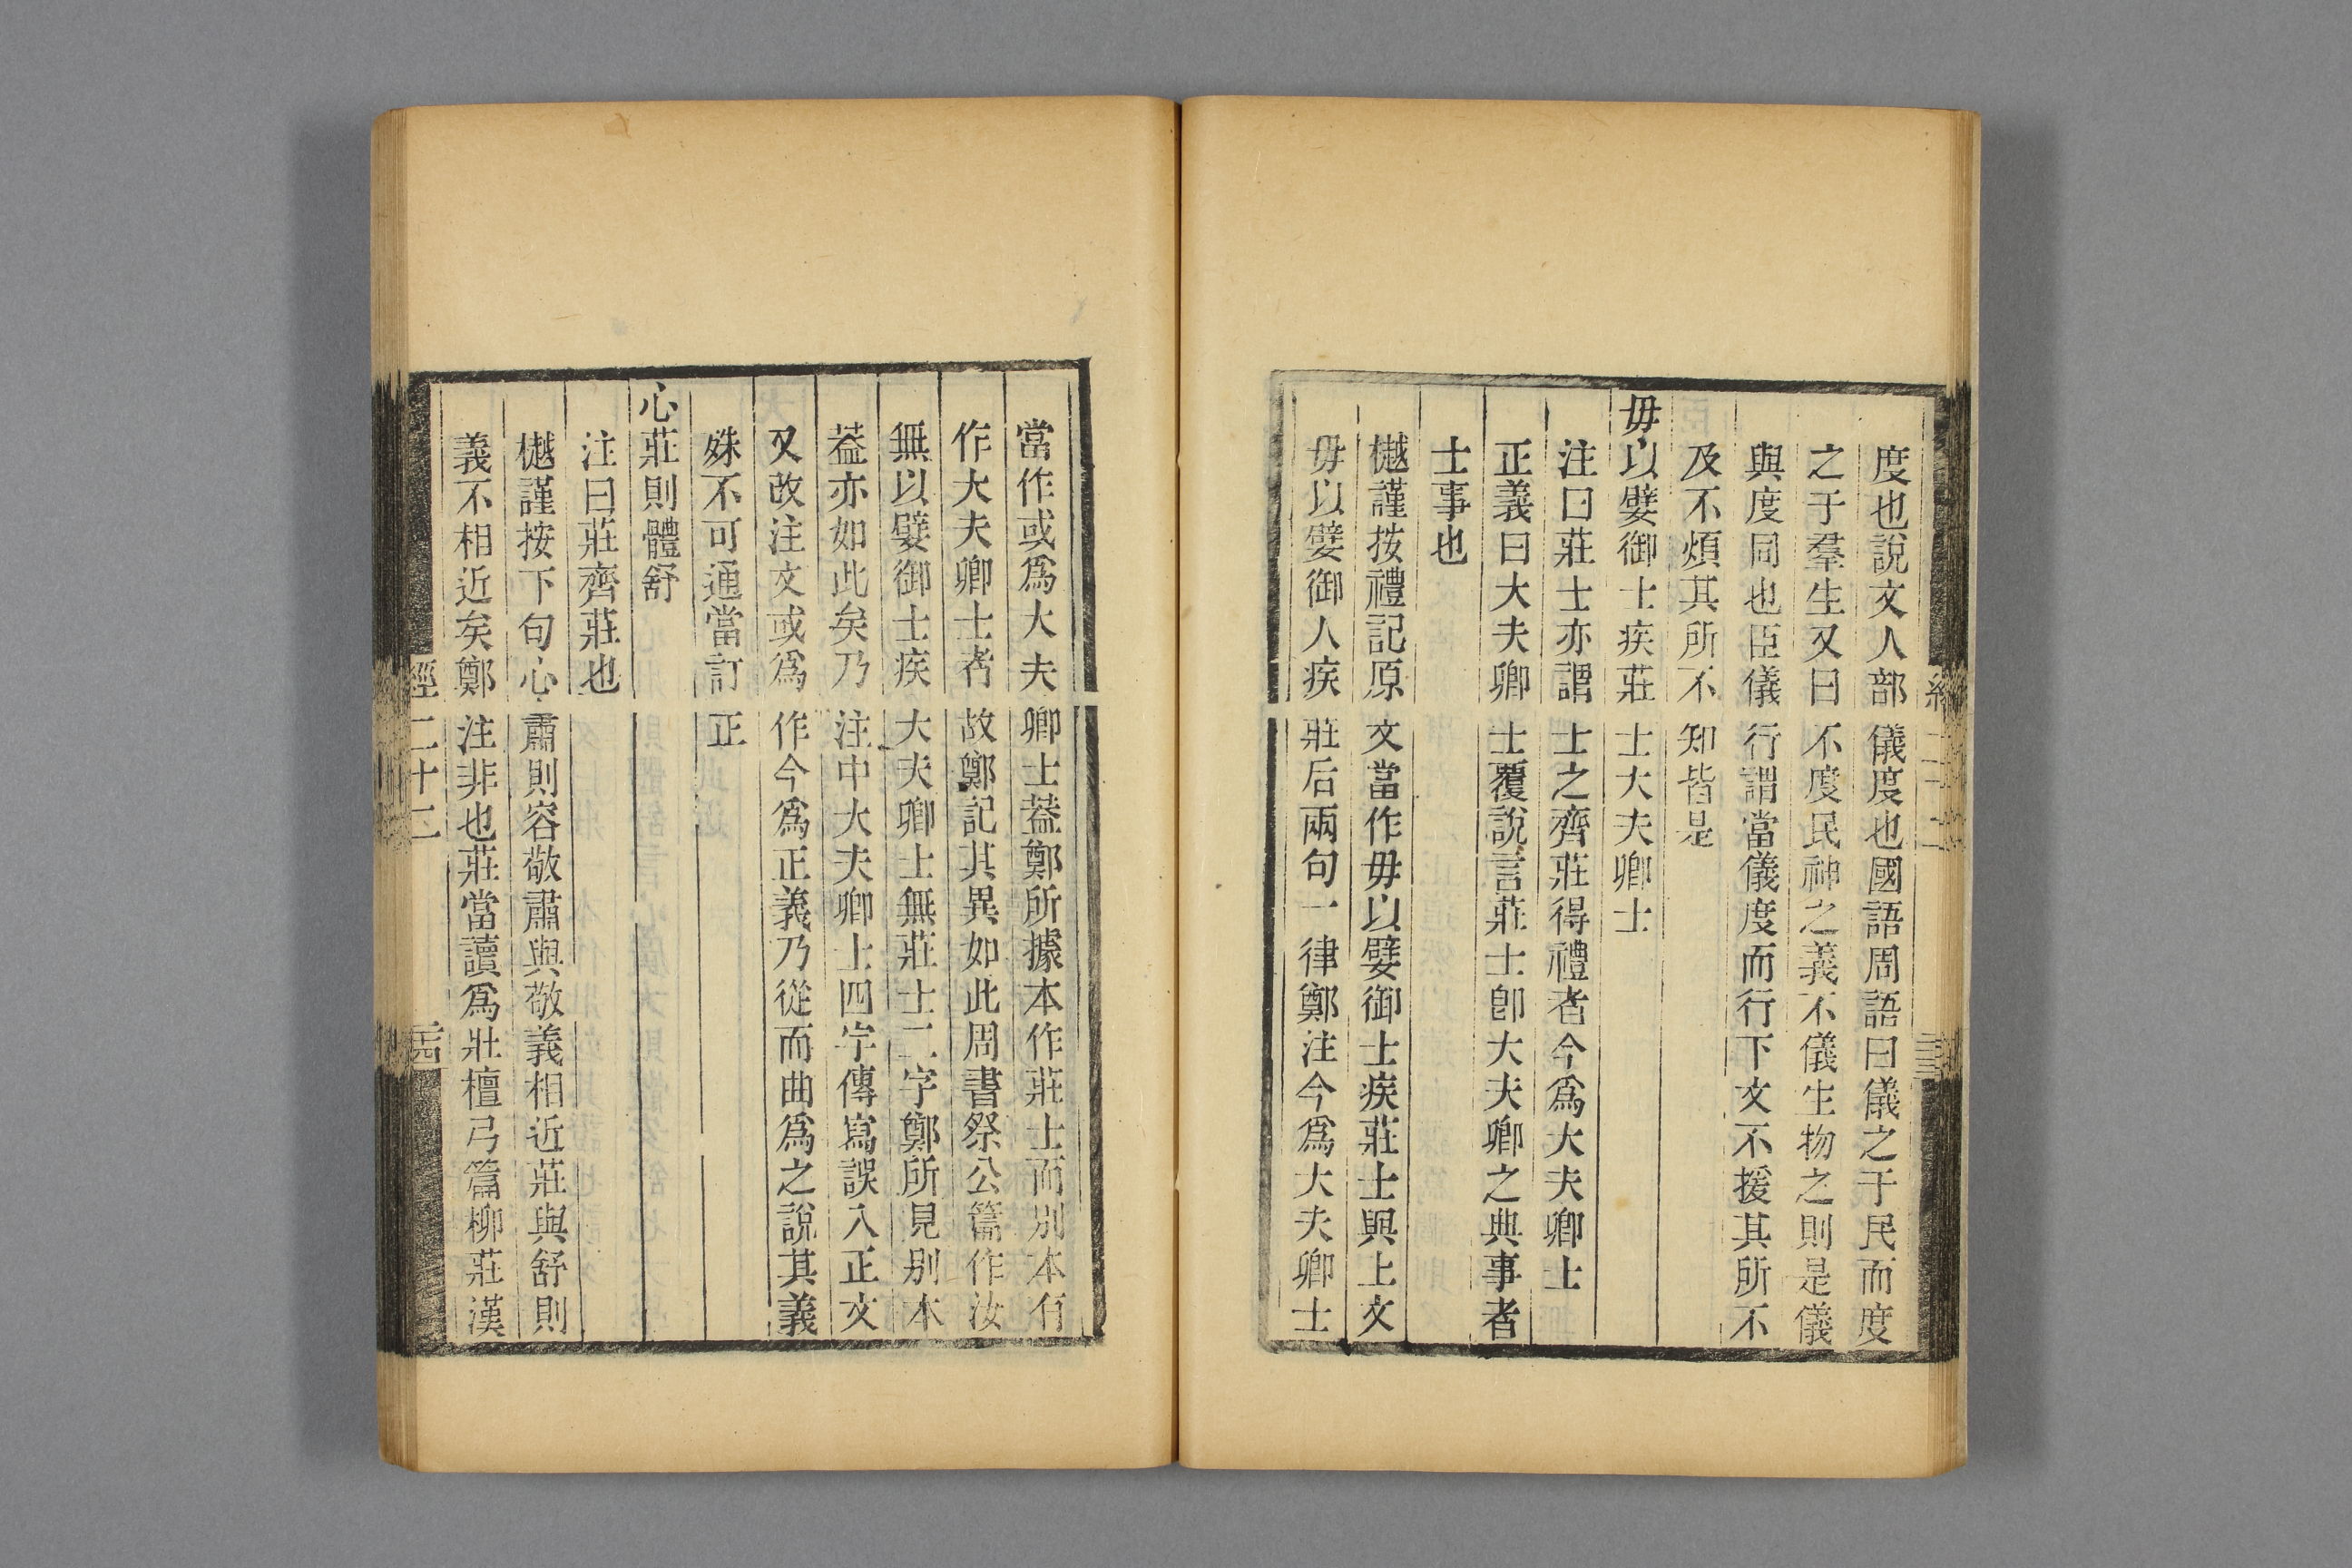 度也說文人部儀度也國語周語曰儀之于民而度
之于羣生又曰不度民神之義不儀生物之則是儀
與度同也臣儀行謂當儀度而行下文不援其所不
及不煩其所不知皆是
毋以嬖御士疾莊士大夫卿士
注曰莊士亦謂士之齊莊得禮者今爲大夫卿士
正義曰大夫卿士覆說言莊士卽大夫卿之典事者
士事也
樾謹按禮記原文當作毋以嬖御士疾莊士與上文
毋以嬖御人疾莊后兩句一律鄭注今爲大夫卿士
當作或爲大夫卿士蓋鄭所據本作莊士而別本有
作大夫卿士者故鄭記其異如此周書祭公篇作汝
無以嬖御士疾大夫卿士無莊士二字鄭所見别本
葢亦如此矣乃注中大夫卿士四字傳寫誤入正文
又改注文或爲作今爲正義乃從而曲爲之說其義
殊不可通當訂正
心莊則體舒
注曰莊齊莊也
樾謹按下句心肅則容敬肅與敬義相近莊與舒則
義不相近矣鄭注非也莊當讀爲壯檀弓篇柳莊漢
經二十二
三古